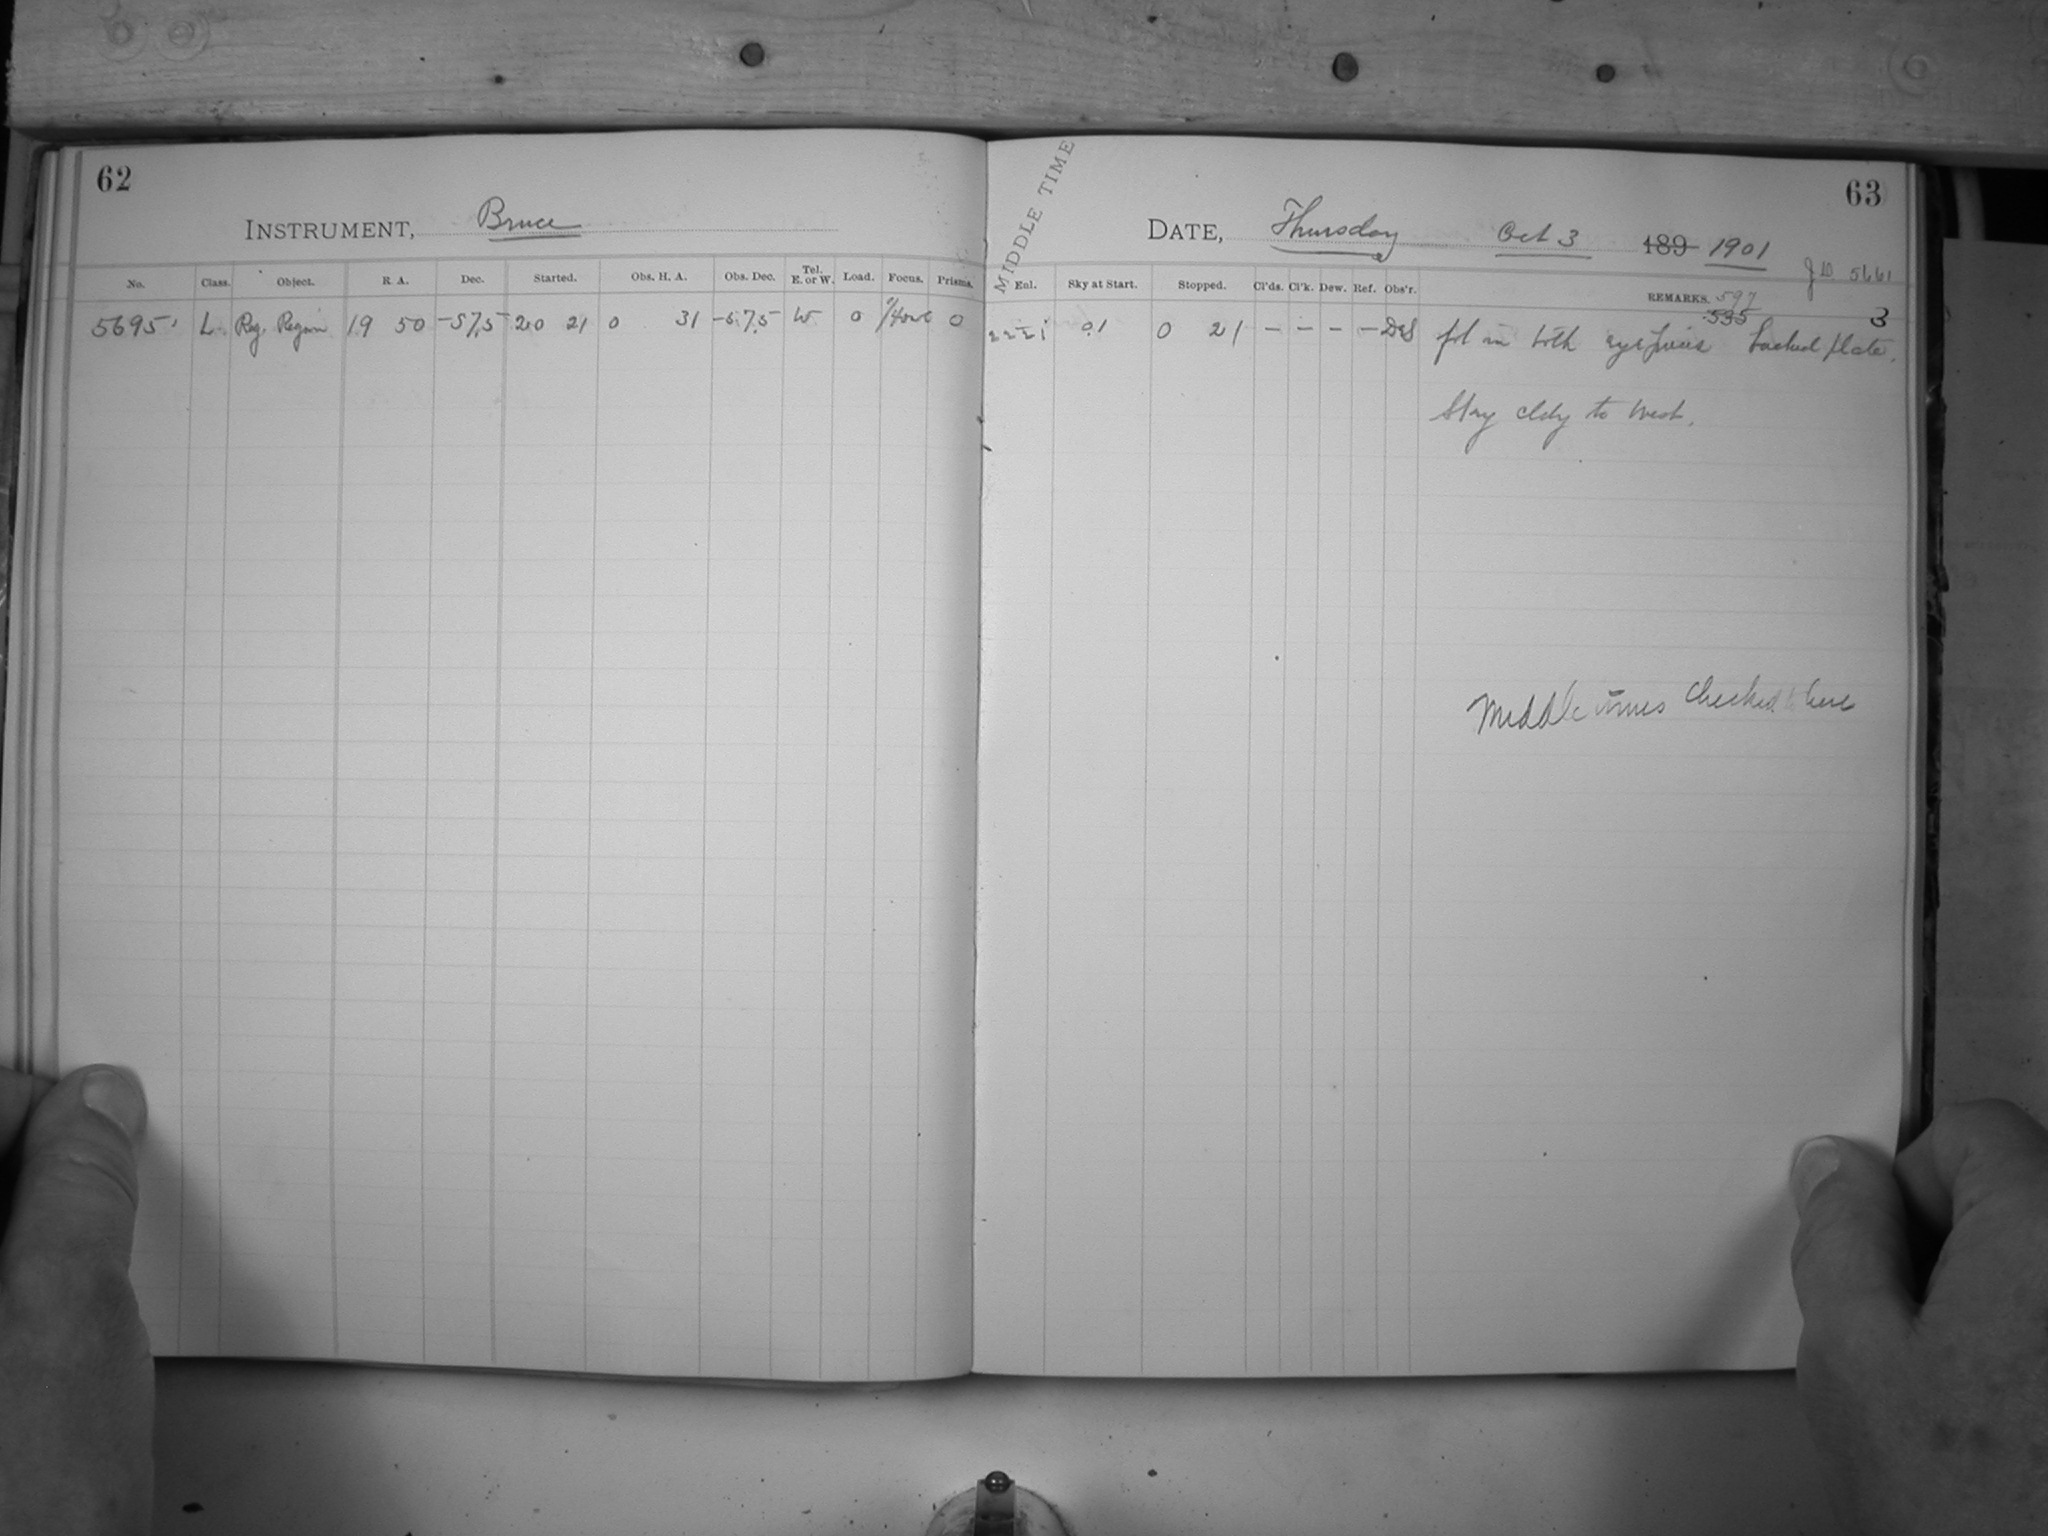 62
INSTRUMENT, Bruce
No. Class. Object. R. A. Dec. Started. Obs. H. A. Obs. Dec. Tel. E. or W. Load. Focus. Prisms.
5695 L. Reg. Region 19 50 -57.5 20 21 0 31 -57.5 W 0 0
MIDDLE TIME
63
DATE, Thursday Oct 3 189 1901
JD 5661
Enl. Sky at Start. Stopped. Cl'ds. Cl'k. Dew. Ref. Obs'r. REMARKS. 597
535 3
22 21 0 21 – – – – in both eyepieces backed plate.
Sky cldy to West.
Middle times checked to here